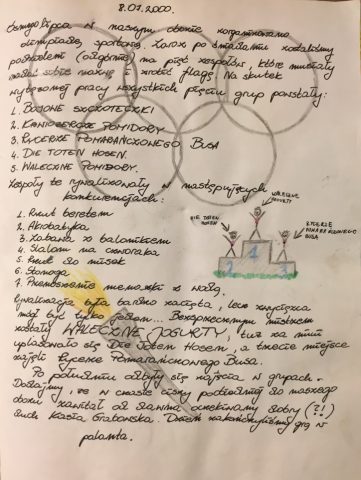 8.07.2000.
Ósmego lipca w naszym obozie zorganizowano
olimpiadę sportową. Zaraz po śniadaniu zostaliśmy
podzieleni na pięć zespołów, które musiały
nadać sobie nazwę i zrobić flagę. Na skutek
wytężonej pracy wszystkich pięciu grup powstały:
1. BOJOWE SZCZOTECZKI
2. KANIBERSKIE POMIDORY
3. RYCERZE POMARAŃCZOWEGO BUSA
4. DIE TOTEN HOSEN.
5. WALECZNE POMIDORY.
Zespoły te rywalizowały w następujących
konkurencjach:
1. Rzut beretem
2. Akrobatyka
3. Zabawa z balonikiem
4. Slalom na czworaka
5. Rzut do misek
6. Stonoga
7. Przenoszenie menażki z wodą.
DIE TOTEN HOSEN
WALECZNE JOGURTY
RYCERZE POMARAŃCZOWEGO BUSA
2 1 3
Rywalizacja była bardzo zacięta, lecz zwycięzca
mógł być tylko jeden... Bezsprzecznym mistrzem
zostały WALECZNE JOGURTY, tuż za nimi
uplasowało się Die Toten Hosen, a trzecie miejsce
zajęli Rycerze Pomarańczowego Busa.
Po południu odbyły się zajęcia w grupach.
Dodajmy, że w czasie ciszy poobiedniej do naszego
obozu zawitał od dawna oczekiwany dobry (?!)
duch Kasia Grabowska. Dzień zakończyliśmy grą w
palanta.